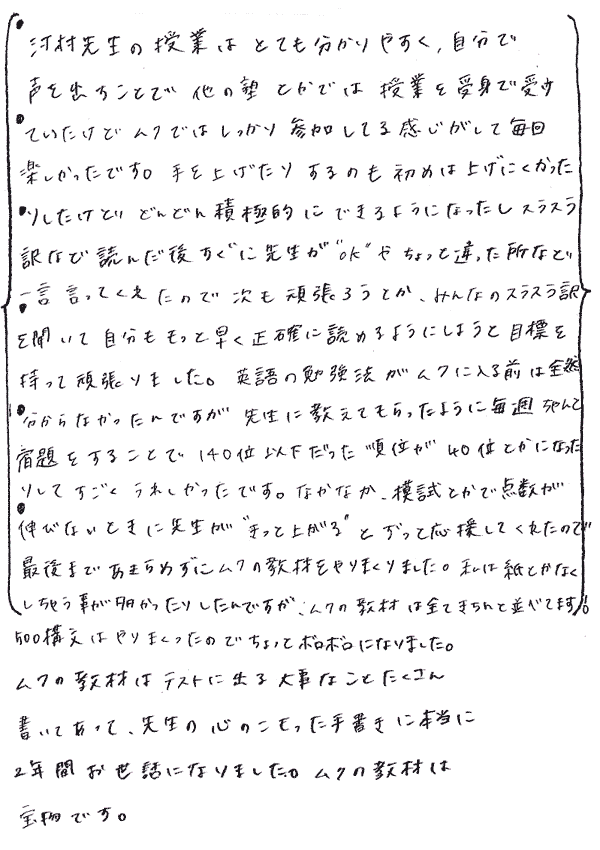 河村先生の授業はとても分かりやすく、自分で
声を出すことで他の塾とかでは授業を受身で受け
ていたけどムクではしっかり参加してる感じがして毎回
楽しかったです。手を上げたりするのも初めは上げにくかった
りしたけどどんどん積極的にできるようになったしスラスラ
訳など読んだ後すぐに先生が"OK"やちょっと違った所など
一言言ってくれたので次も頑張ろうとか、みんなのスラスラ訳
を聞いて自分ももっと早く正確に読めるようにしようと目標を
持って頑張りました。英語の勉強法がムクに入る前は全然
分からなかったんですが先生に教えてもらったように毎週ちゃんと
宿題をすることで140位以下だった順位が40位とかになった
りしてすごくうれしかったです。なかなか、模試とかで点数が
伸びないときに先生が"きっと上がる"とずっと応援してくれたので
最後まであきらめずにムクの教材をやりまくりました。私は紙とかなく
しちゃう事が多かったりしたんですが、ムクの教材は全てきちんと並べてます!
500構文はやりまくったのでちょっとボロボロになりました。
ムクの教材はテストに出る大事なことたくさん
書いてあって、先生の心のこもった手書きに本当に
2年間お世話になりました。ムクの教材は
宝物です。